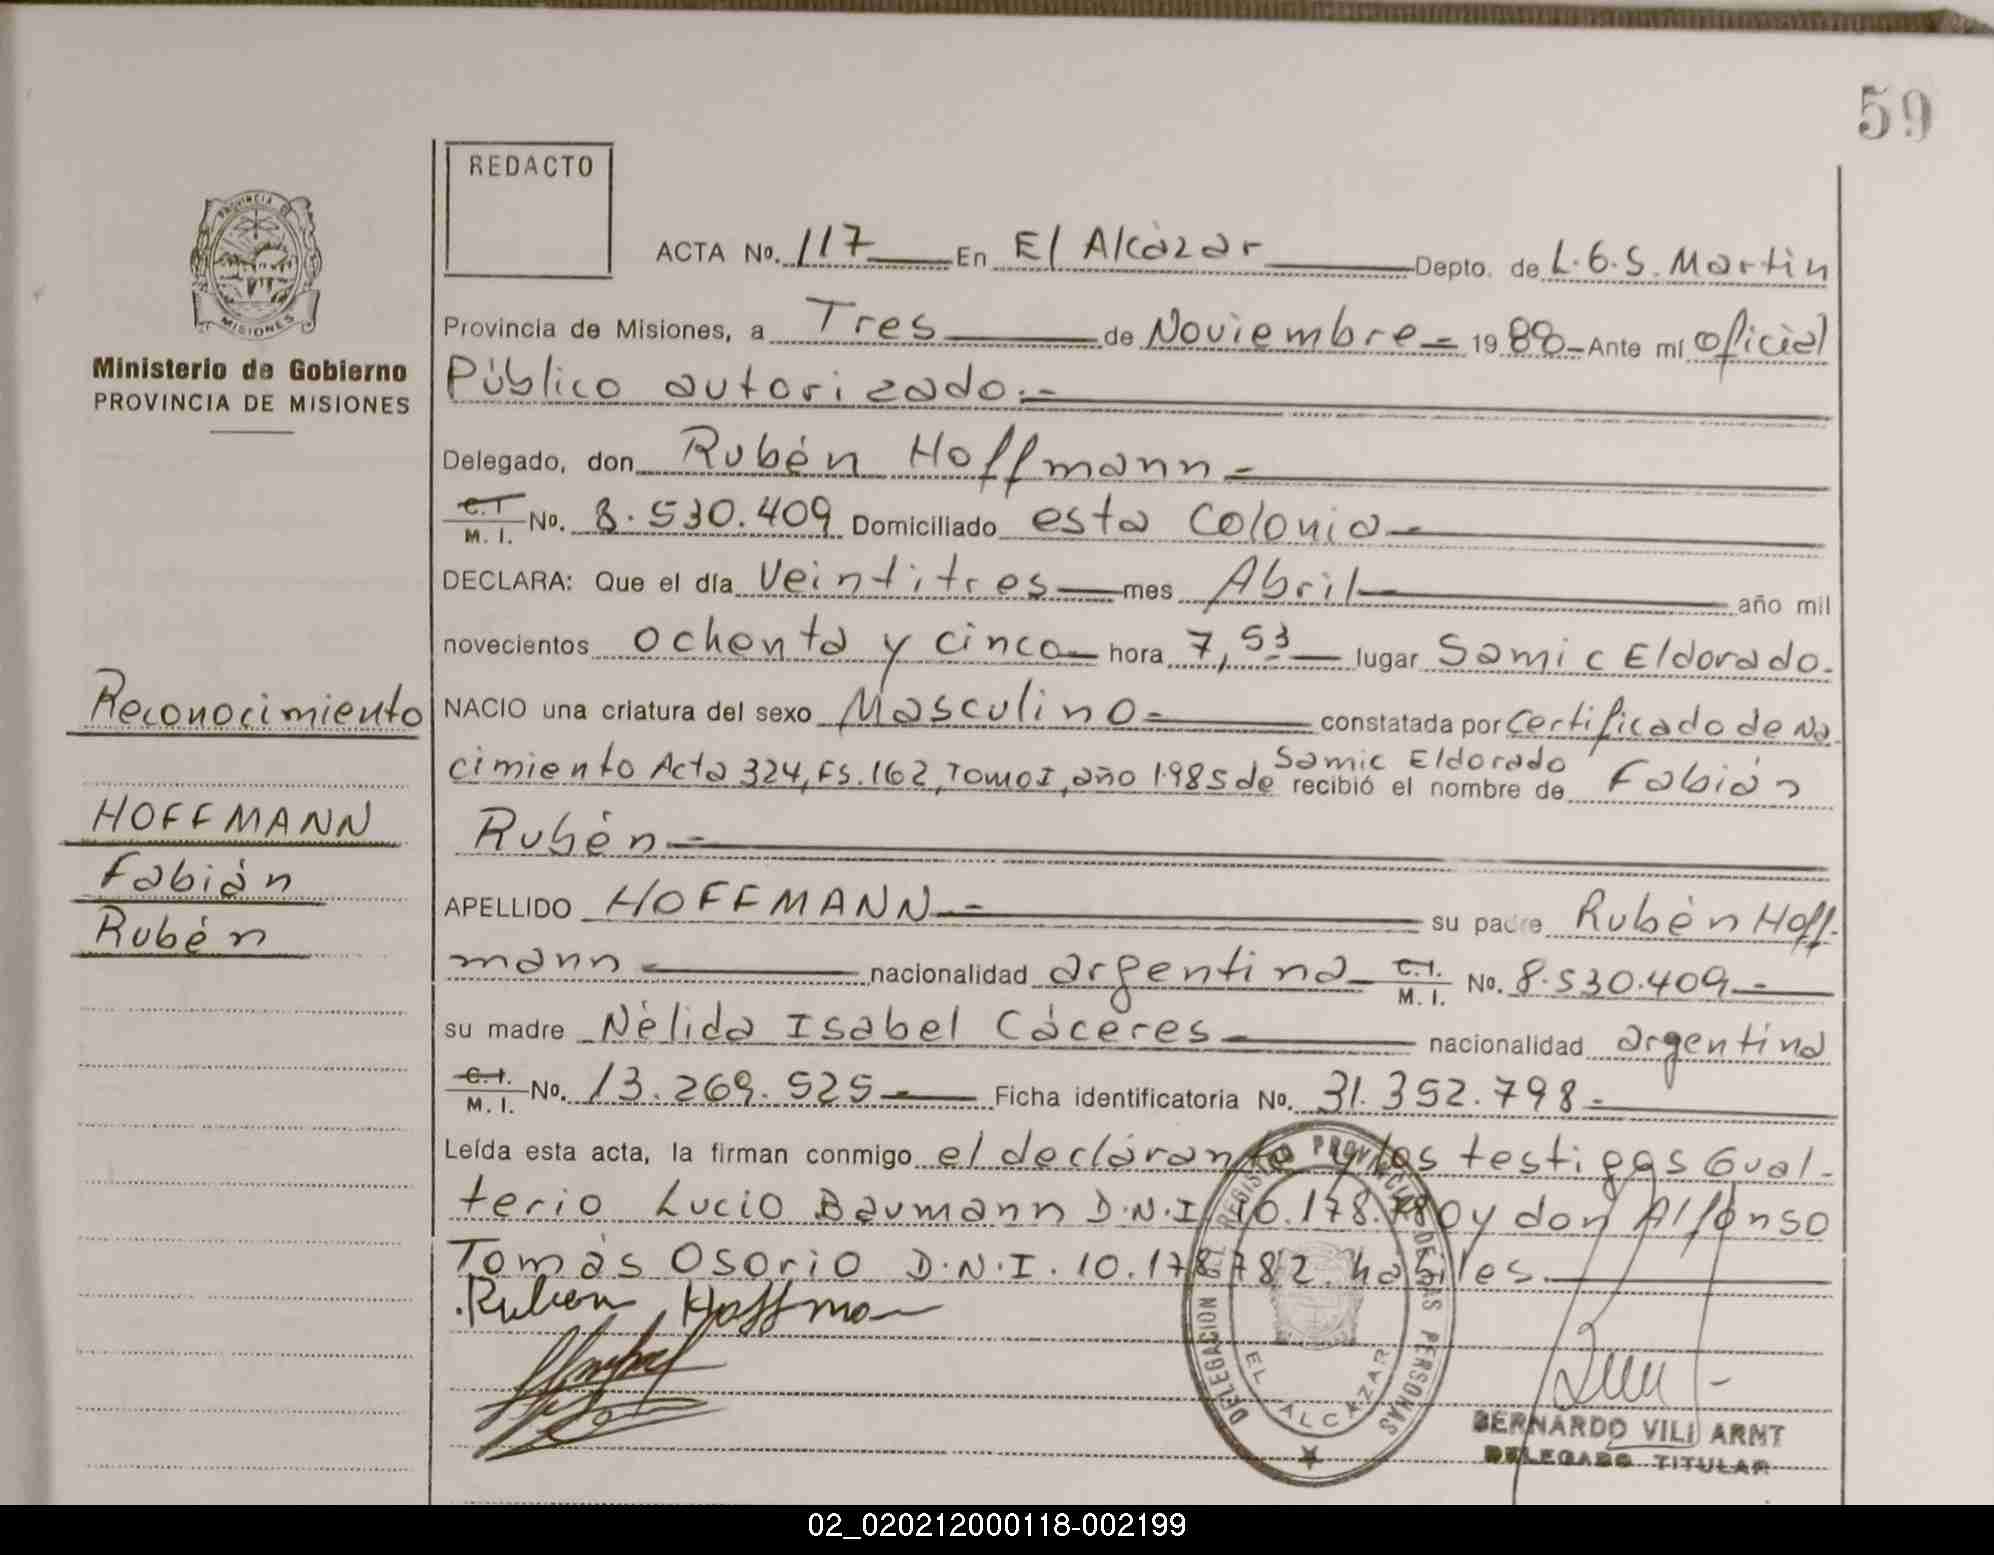 59
REDACTO
PROVINCIA DE
MISIONES
Ministerio de Gobierno
PROVINCIA DE MISIONES
ACTA No. 117 En El Alcázar Depto. de L.G.S. Martin
Provincia de Misiones, a Tres de Noviembre - 1988 - Ante mí oficial
Público autorizado.-
Delegado, don Rubén Hoffmann -
C.I. M. I. No. 8.530.409 Domiciliado esta Colonia -
DECLARA: Que el día Veintitres mes Abril año mil
novecientos ochenta y cinco hora 7,53 lugar Samic Eldorado.
Reconocimiento
NACIO una criatura del sexo Masculino - constatada por Certificado de Na
cimiento Acta 324, Fs. 162, Tomo I, año 1985 de Samic Eldorado recibió el nombre de Fabián
Rubén -
HOFFMANN
Fabián
Rubén
APELLIDO HOFFMANN - su padre Rubén Hoff-
mann nacionalidad argentina C.I. M. I. No. 8.530.409 -
su madre Nélida Isabel Cáceres nacionalidad argentina
C.I. M. I. No. 13.269.525 Ficha identificatoria No. 31.352.798 -
Leída esta acta, la firman conmigo el declarante y los testigos Gual-
terio Lucio Baumann D.N.I. 10.178.780 y don Alfonso
Tomás Osorio D.N.I. 10.178.782 habiles.
Ruben Hoffman
DELEGACION DEL REGISTRO PROVINCIAL DE LAS PERSONAS
EL ALCAZAR
BERNARDO VILI ARNT
DELEGADO TITULAR
02_020212000118-002199